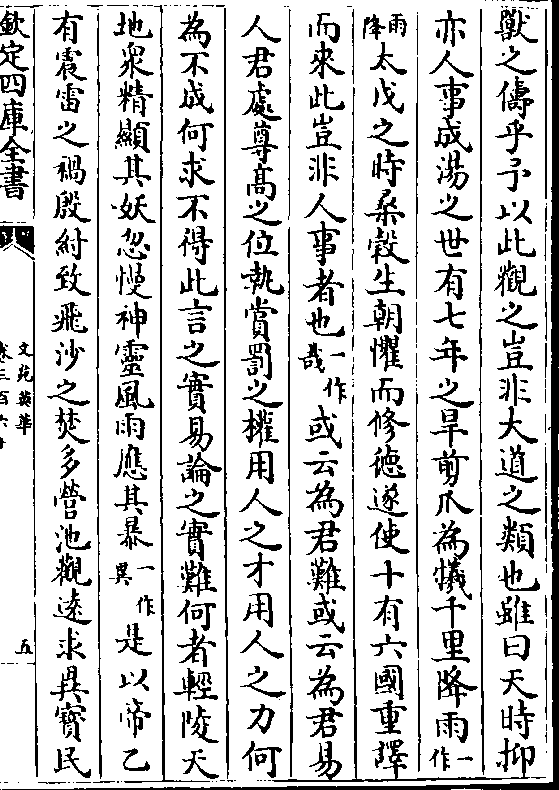 獸之儔乎予以此觀之豈非大道之類也雖曰天時抑
亦人事成湯之世有七年之旱剪爪為犧千里降雨一作
雨降太戊之時桑榖生朝懼而修德遂使十有六國重譯
而來此豈非人事者也一作哉或云為君難或云為君易
人君處尊髙之位執賞罰之權用人之才用人之力何
為不成何求不得此言之實易論之實難何者輕陵天
地衆精顯其妖忽慢神靈風雨應其暴一作異是以帝乙
有震雷之禍殷紂致飛沙之焚多營池觀逺求異寳民
欽定四庫全書
文苑英華
卷三百六十
五